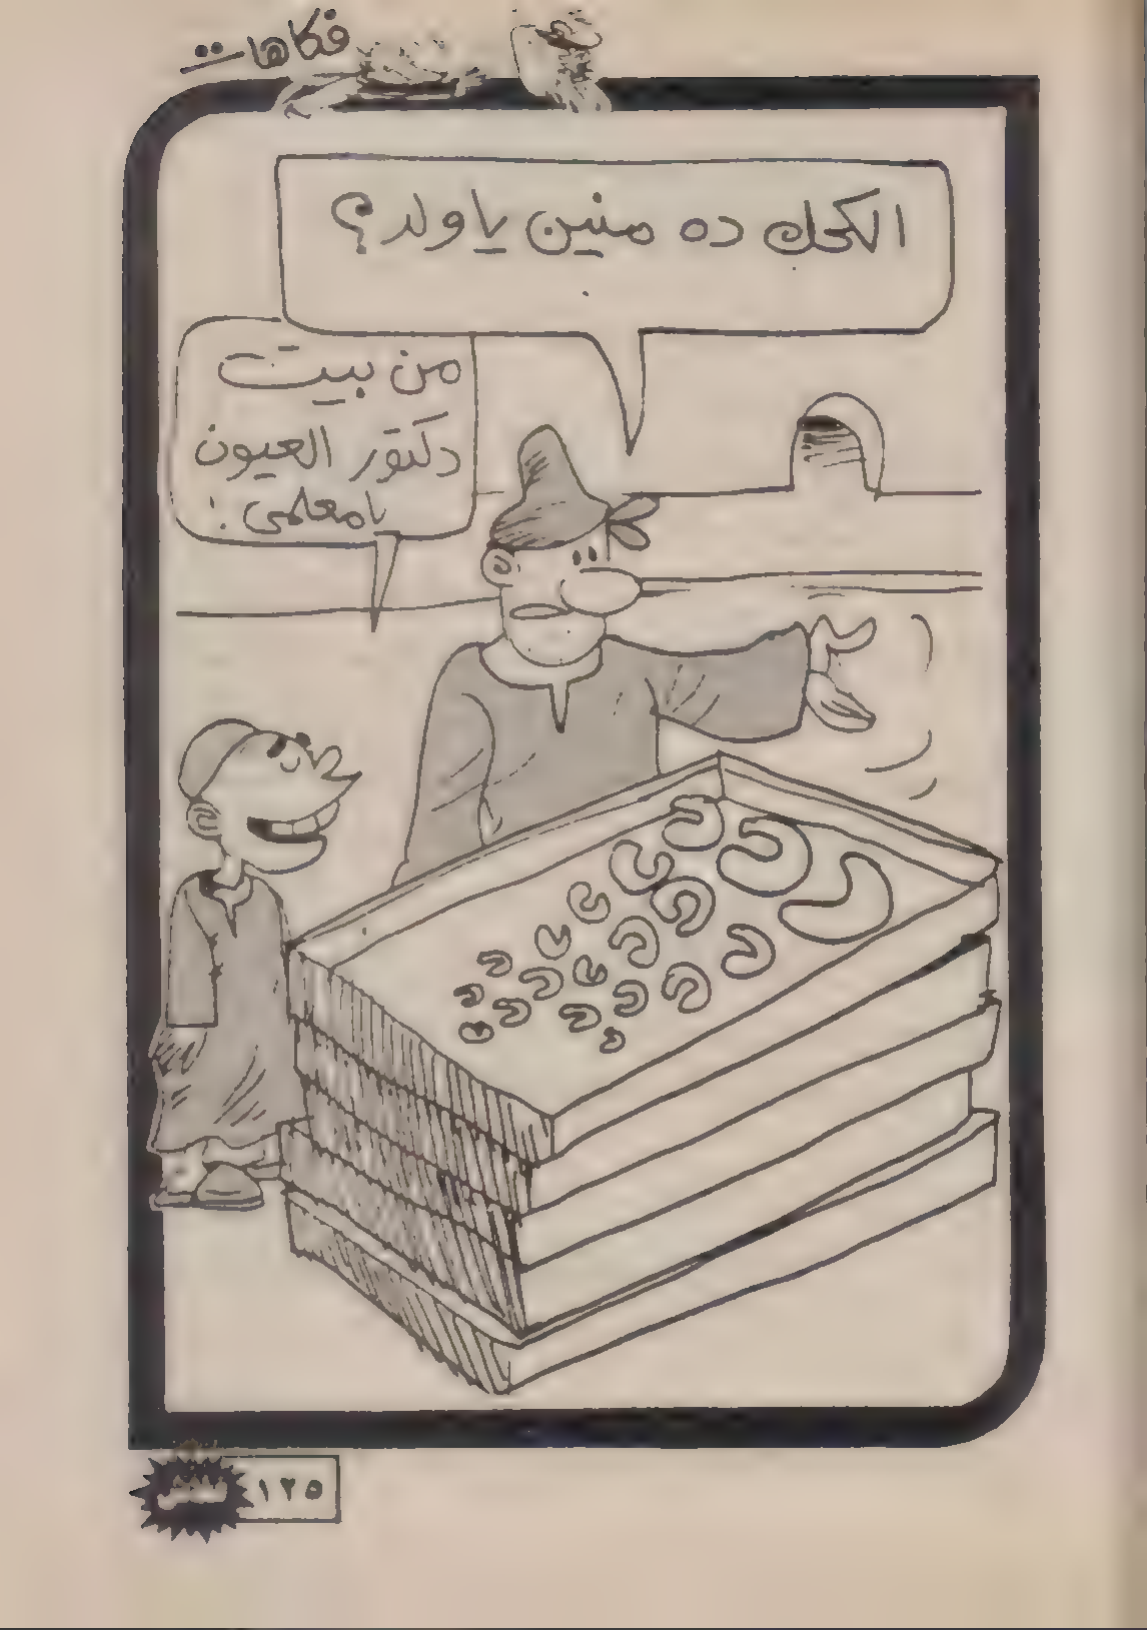 فكاهات
الكحك ده منين يا ولد؟
من بيت
دكتور العيون
يا معلمى !
١٢٥